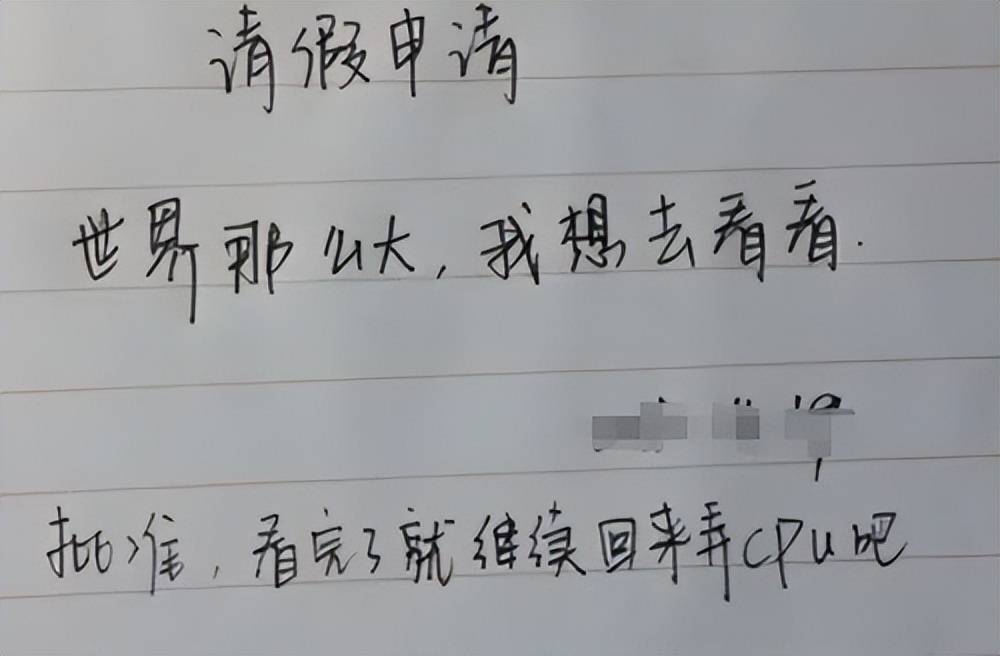 请假申请
世界那么大,我想去看看.
批准,看完了就继续回来弄CPU吧